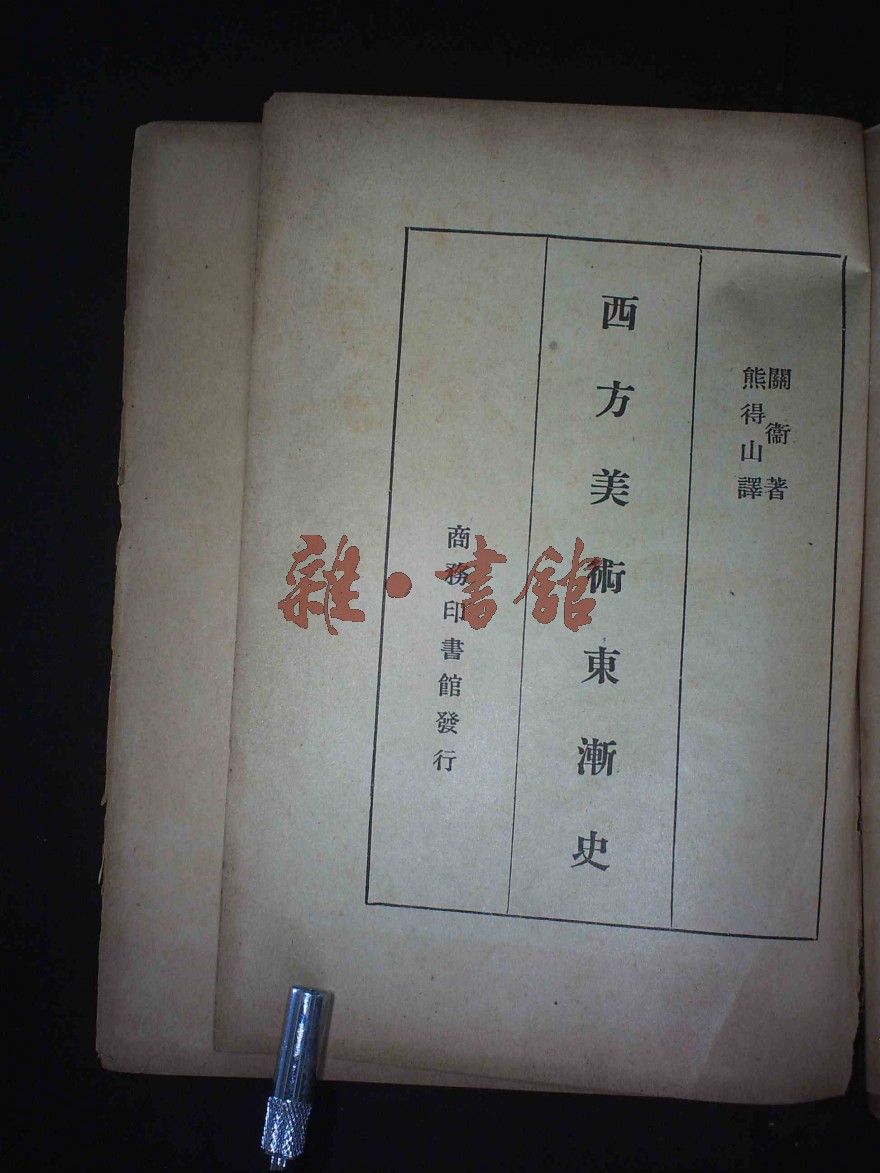 關衞著
熊得山譯
西方美術東漸史
商務印書館發行
雜·書館